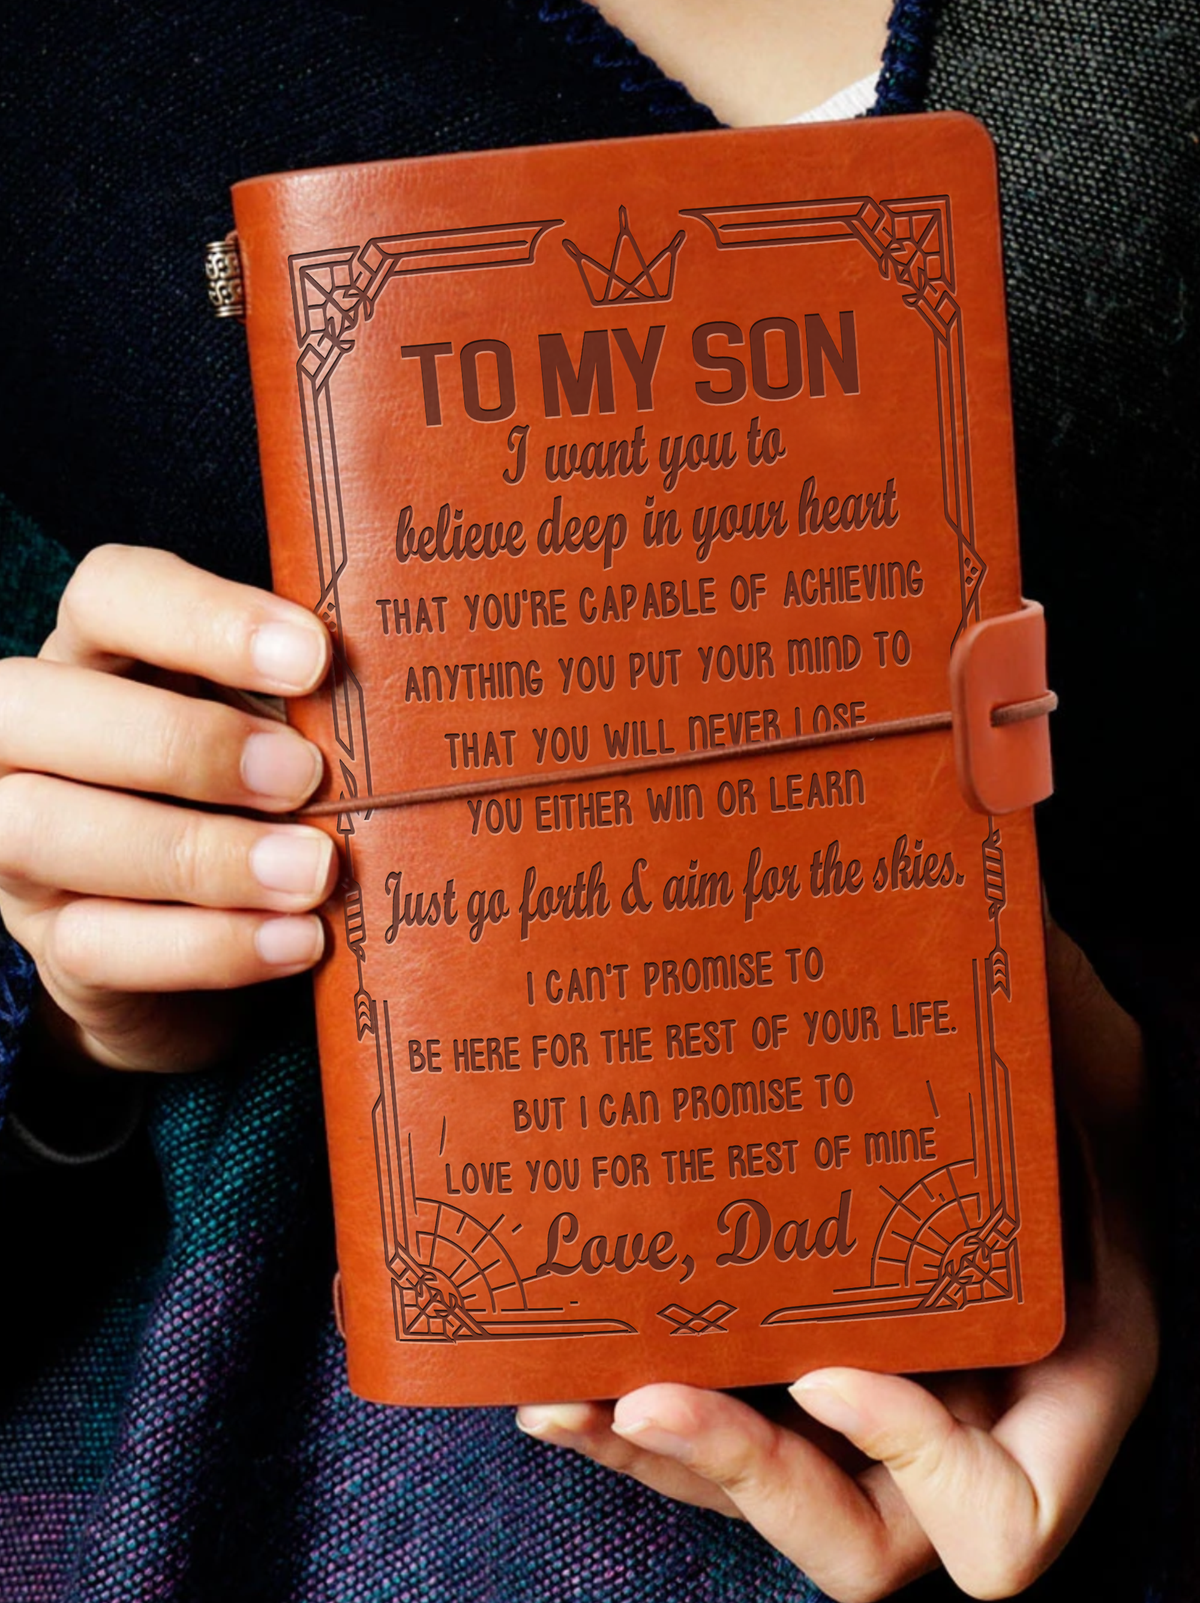 TO MY SON
I want you to
believe deep in your heart
THAT YOU'RE CAPABLE OF ACHIEVING
ANYTHING YOU PUT YOUR MIND TO
THAT YOU WILL NEVER LOSE
YOU EITHER WIN OR LEARN
Just go forth & aim for the skies.
I CAN'T PROMISE TO
BE HERE FOR THE REST OF YOUR LIFE.
BUT I CAN PROMISE TO
LOVE YOU FOR THE REST OF MINE
Love, Dad